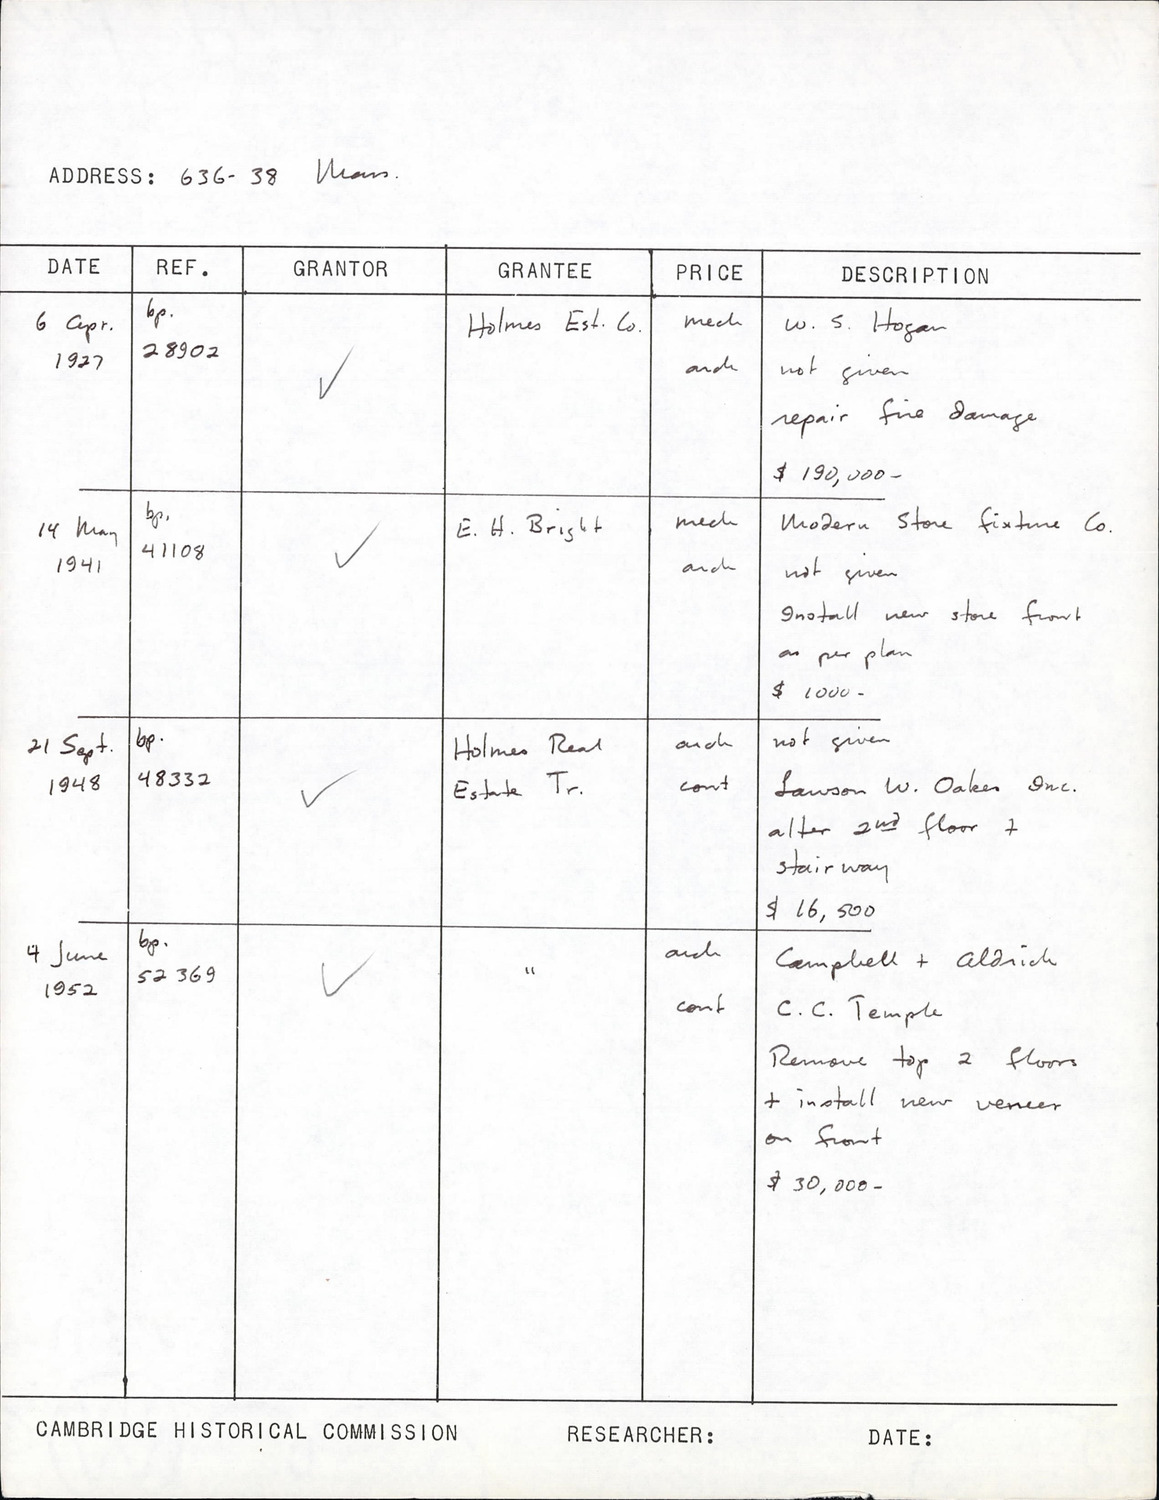 ADDRESS: 636-38 Mass.
DATE REF. GRANTOR GRANTEE PRICE DESCRIPTION
6 Apr. bp. Holmes Est. Co. mech W. S. Hogan
1927 28902 ✓ arch not given
repair fire damage
$ 190,000-
14 May bp. E. H. Bright mech Modern Store fixture Co.
1941 41108 ✓ arch not given
Install new store front
as per plan
$ 1000-
21 Sept. bp. Holmes Real arch not given
1948 48332 ✓ Estate Tr. cont Lawson W. Oakes Inc.
alter 2nd floor +
stairway
$ 16,500
4 June bp. " arch Campbell + Aldrich
1952 52369 ✓ cont C. C. Temple
Remove top 2 floors
+ install new veneer
on front
$ 30,000-
CAMBRIDGE HISTORICAL COMMISSION RESEARCHER: DATE: